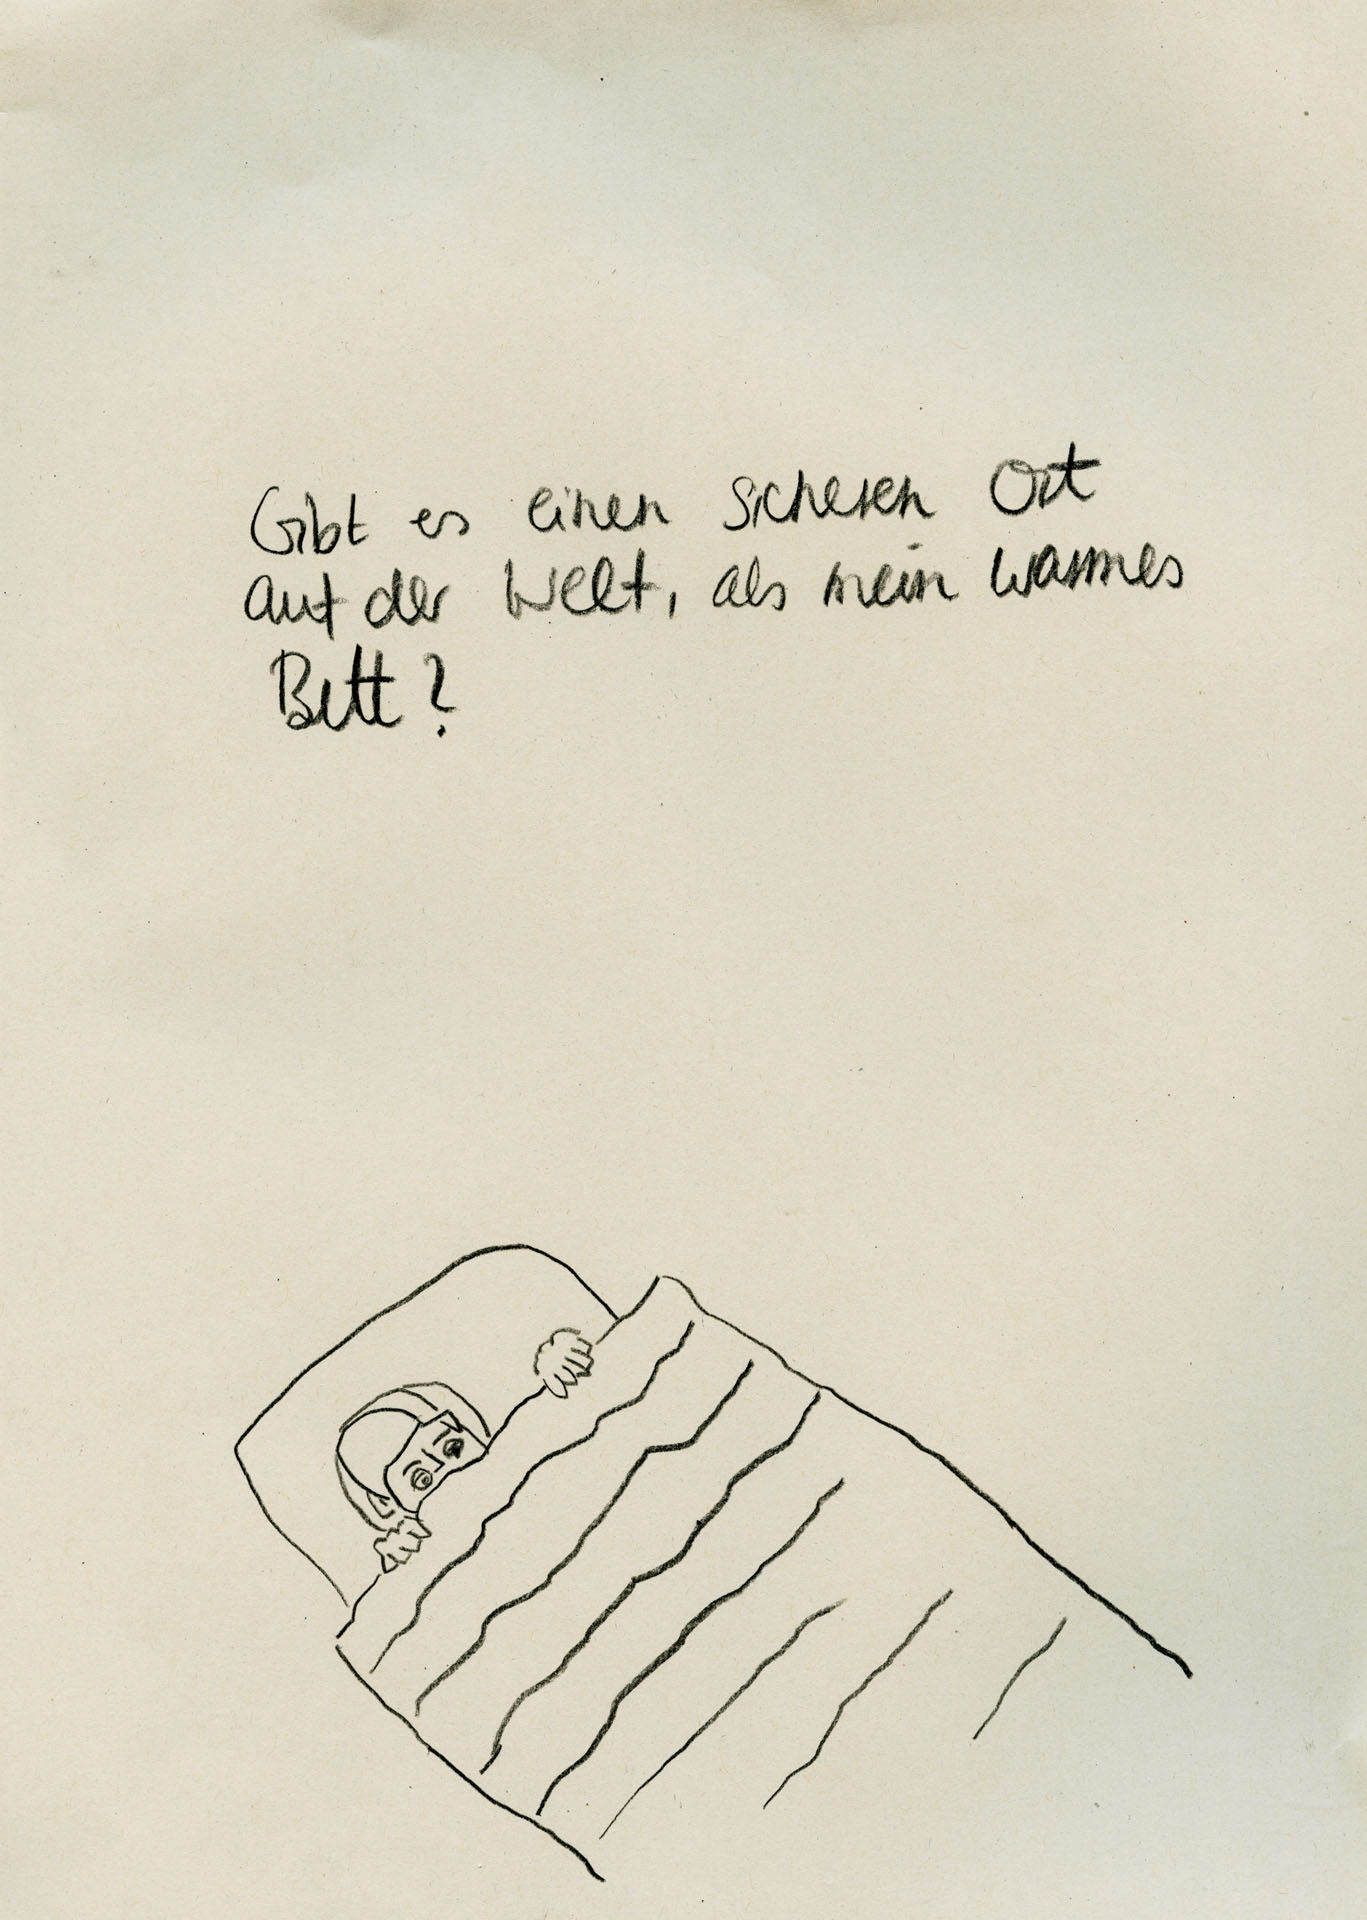 Gibt es einen sicheren Ort
auf der Welt, als mein warmes
Bett?